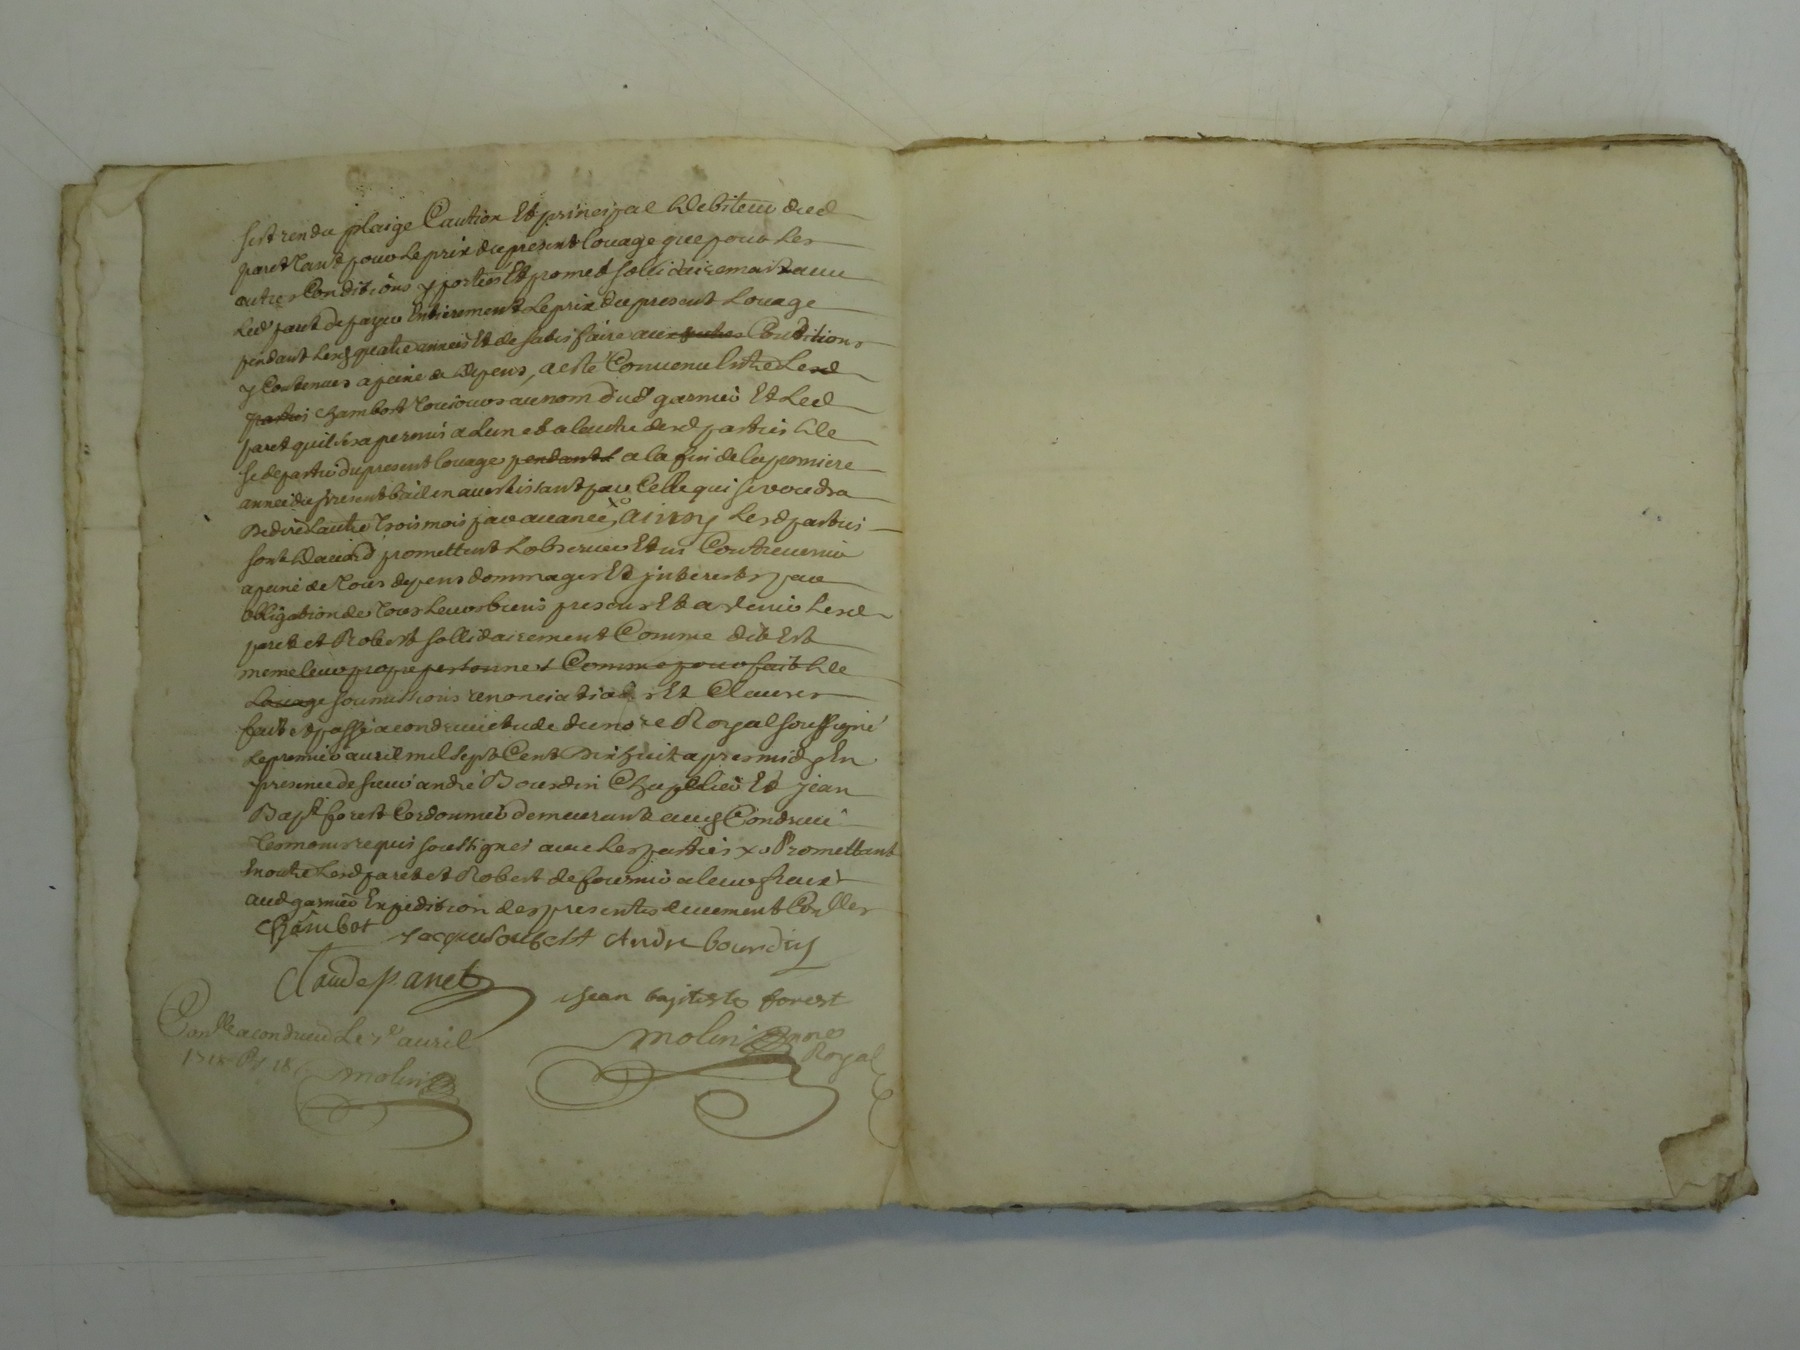 sest rendu plaige Caution Et principal debiteur dud
paret tant pour le prix du present louage que pour les
autres Conditions y portées Et promet sollidairement avec
led paret de payer Entierement le prix du present louage
pendant lesd quatre années Et de satisfaire aux autres Conditions
y Contenues a peine de depens, a esté Convenu Entre lesd
parties Chambot tousiours au nom dud garnier Et led
paret quil sera permis a lun et a lautre desd parties de
se departir du present louage pendant a la fin de la premiere
année du present bail en avertissant par Celle qui se voudra
dedire lautre trois mois par avance, ainsy lesd parties
sont daccord promettent lobserver Et ny Contrevenir
a peine de tous depens dommages Et interests par
obligation de tous leurs biens presens Et a venir lesd
paret et Robert sollidairement Comme dit Est
meme leurs propre personnes Comme pour fait de
Louage soumissions renonciations Et Clauses
fait et passé a condrieu etude du no.re Royal soussigné
le premier avril mil sept Cent dix huit apres midy En
presence de sieur andré Bourdin Chapelier Et jean
Bap.t forest Cordonnier demeurant aud Condrieu
tesmoins requis soussignes avec les parties x Promettant
En outre lesd paret et Robert de fournir a leurs frais
aud garnier Expedition des presentes deuement Con.lées
Chambot Jacques Robert Andre bourdin
Claude paret
jean baptiste forest
Con.llé a condrieu le 1.er avril
molin no.re
Royal
molin